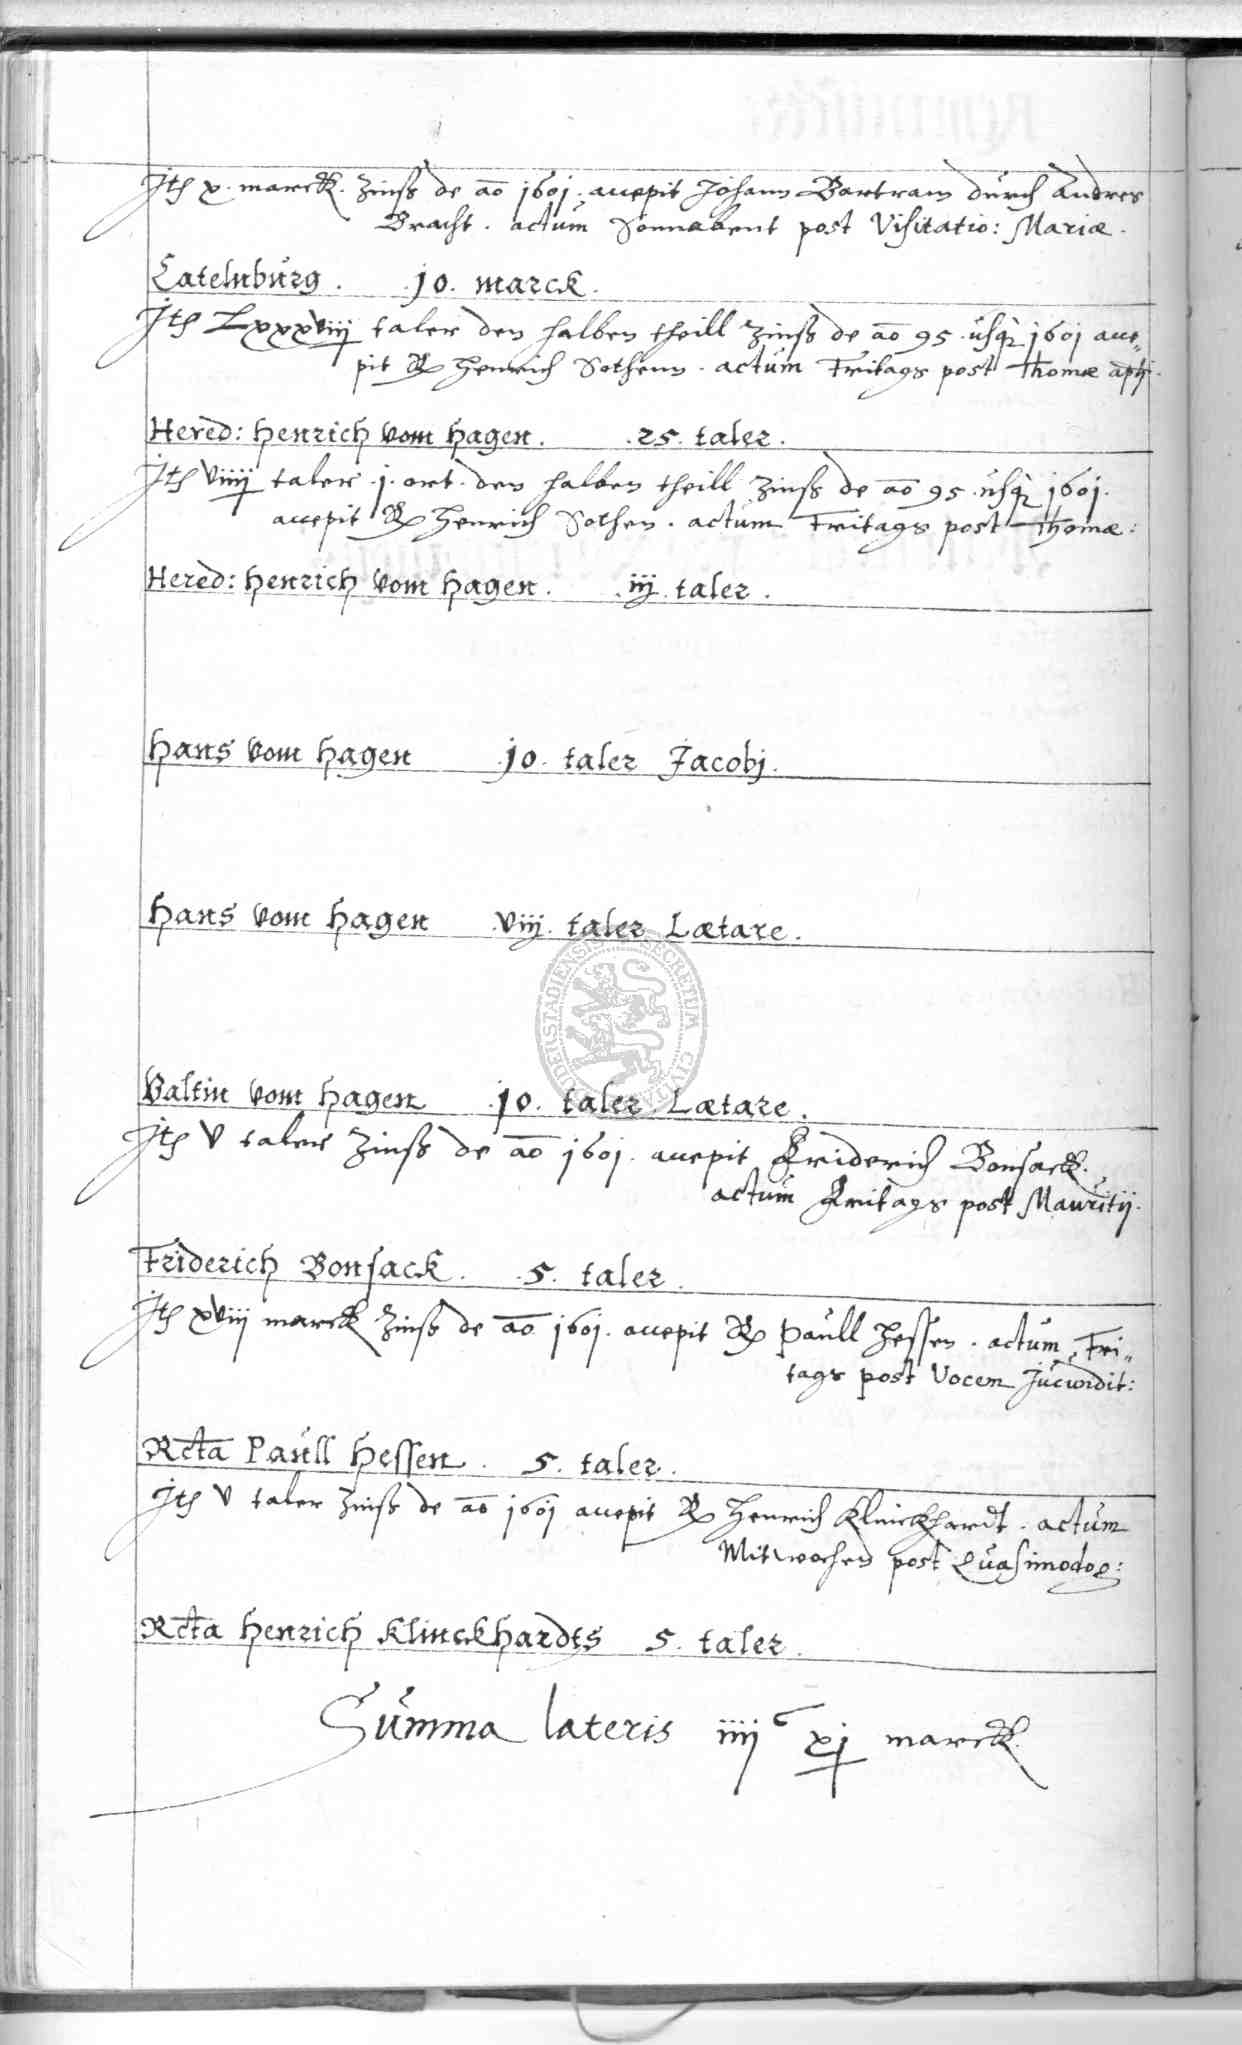 Jtem x. marck. Zinß de ao 1601. accepit Johann Bartram durch Andres
Bracht. actum Sonnabent post Visitatio: Mariæ.
Catelnburg. .10. marck.
Jtem Lxxxviiij taler den halben theill Zinß de ao 95. usq 1601 acce„
pit R Henrich Sothenn. actum Fritags post Thomæ apli.
Hered: Henrich vom Hagen. .25. taler.
Jtem viiij taler .j. ort. den halben theill Zinß de ao 95. usq 1601.
accepit R Henrich Sothen. actum Fritags post Thomæ:
Hered: Henrich vom Hagen. .iij. taler.
Hans vom Hagen .10. taler Jacobj.
Hans vom Hagen .viij. taler Lætare.
SECRETUM CIVITATIS DUDERSTADIENSIS
Valtin vom Hagen .10. taler Lætare.
Jtem v taler Zinß de ao 1601. accepit Friderich Bonsack.
actum Fritags post Mauritij.
Friderich Bonsack. .5. taler.
Jtem xviij marck Zinß de ao 1601. accepit R Paull Hessen. actum Fri„
tags post Vocem Jucundit:
Rcta Paull Hessen. 5. taler.
Jtem v taler Zinß de ao 1601 accepit R Henrich Klinckhardt. actum
Mitwochen post Quasimodog:
Rcta Henrich Klinckhardts 5. taler.
Summa lateris iiij c xj marck